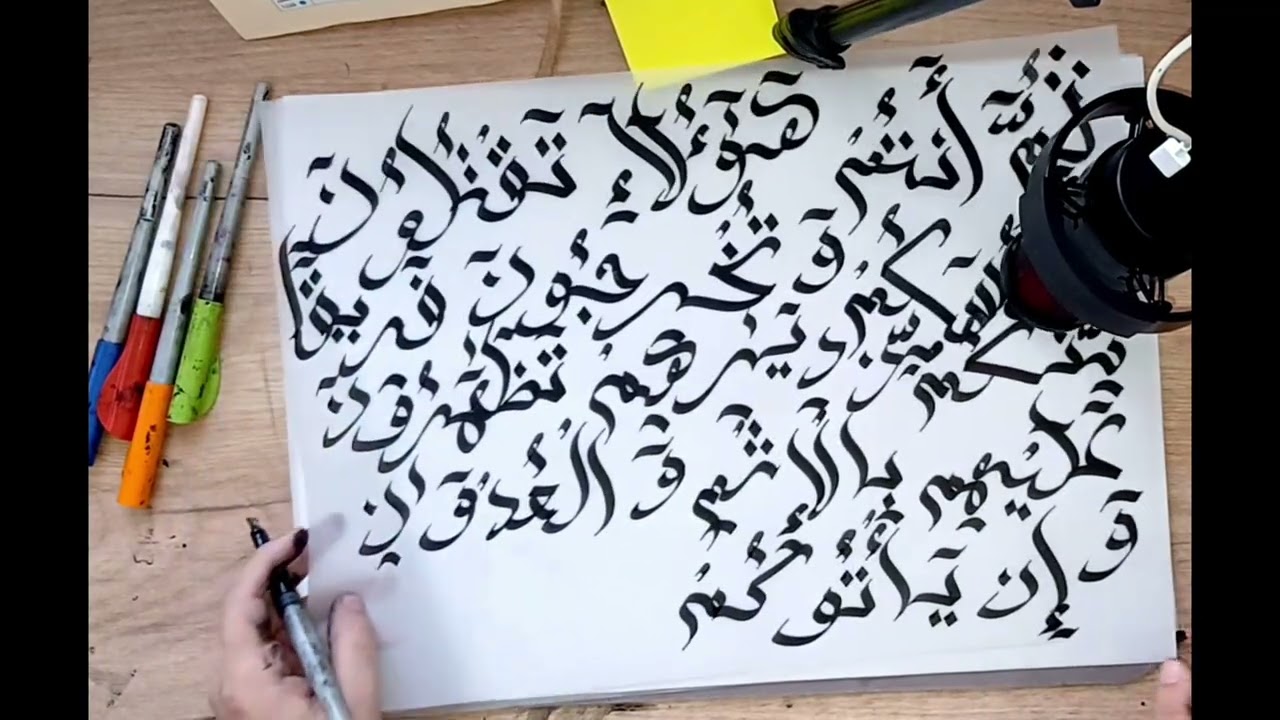 ثُمَّ أَنتُمْ هَٰٓؤُلَآءِ تَقْتُلُونَ
وَتُخْرِجُونَ فَرِيقًا
مِّن دِيَٰرِهِمْ تَظَٰهَرُونَ
عَلَيْهِم بِالْإِثْمِ وَالْعُدْوَٰنِ
وَإِن يَأْتُوكُمْ